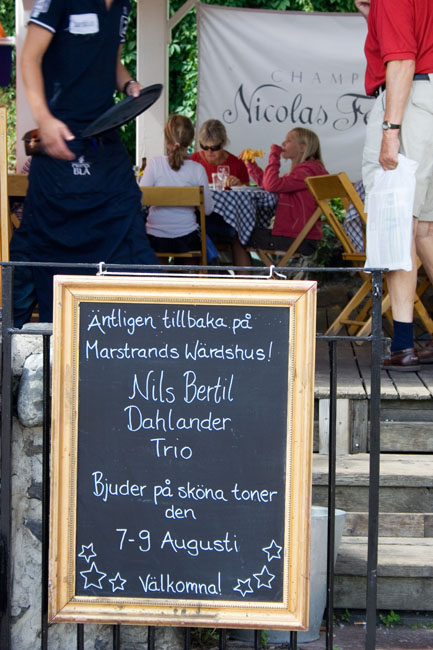 CHAMP
Nicolas Fe
BLÅ
Äntligen tillbaka på
Marstrands Wärdshus!
Nils Bertil
Dahlander
Trio
Bjuder på sköna toner
den
7-9 Augusti
Välkomna!